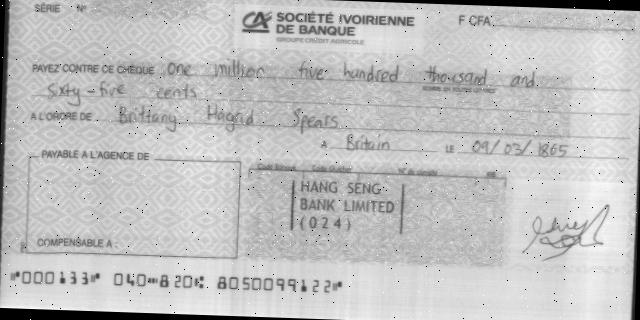 SÉRIE N°
CA SOCIÉTÉ IVOIRIENNE
DE BANQUE
GROUPE CRÉDIT AGRICOLE
F CFA
PAYEZ CONTRE CE CHÈQUE One million five hundred thousand and
Sixty-five cents
A L'ORDRE DE Brittany Hagrid Spears
A Britain LE 09/03/1865
PAYABLE A L'AGENCE DE
COMPENSABLE A :
HANG SENG
BANK LIMITED
(024)
⑈000133⑈ 040⑉820⑆ 8050099122⑈